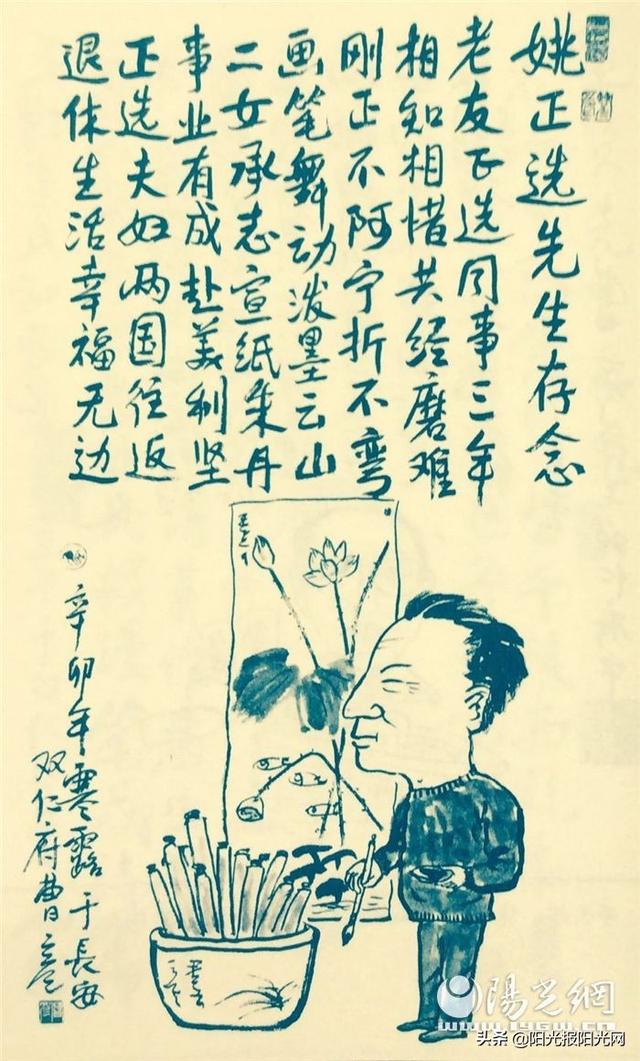 姚正选先生存念
老友正选同事三年
相知相惜共经磨难
刚正不阿宁折不弯
画笔舞动泼墨云山
二女承志宣纸朱丹
事业有成赴美利坚
正选夫妇两国往返
退休生活幸福无边
辛卯年寒露于長安
双仁府曹
陽光網
头条 @阳光报阳光网